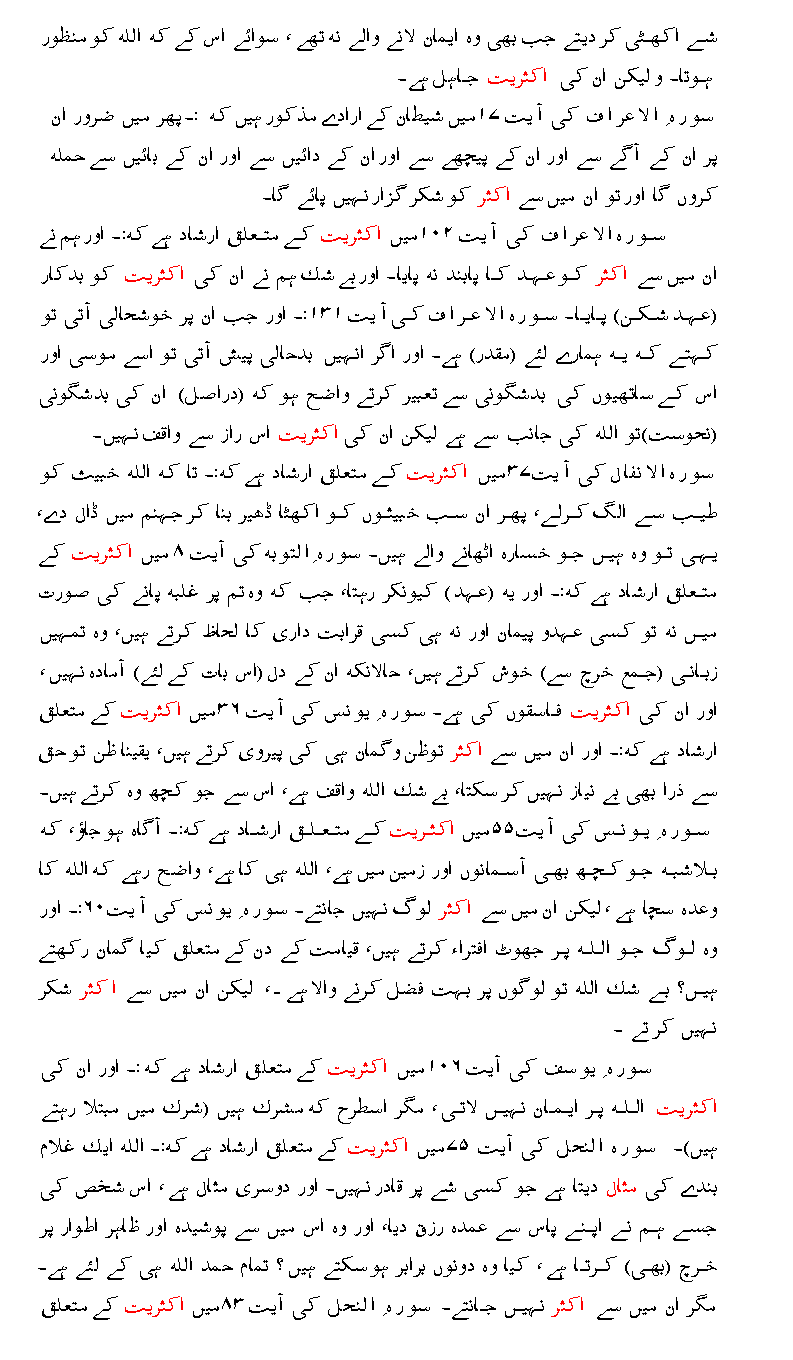 شے اکھٹی کر دیتے جب بھی وہ ایمان لانے والے نہ تھے ، سوائے اس کے کہ اللہ کو منظور
ہوتا۔ و لیکن ان کی اکثریت جاہل ہے۔
سورہ الاعراف کی آیت ۱۷میں شیطان کے ارادے مذکور ہیں کہ :۔پھر میں ضرور ان
پر ان کے آگے سے اور ان کے پیچھے سے اور ان کے دائیں سے اور ان کے بائیں سے حملہ
کروں گا اور تو ان میں سے اکثر کو شکر گزار نہیں پائے گا۔
سورہ الاعراف کی آیت ۱۰۲میں اکثریت کے متعلق ارشاد ہے کہ:۔ اور ہم نے
ان میں سے اکثر کو عہد کا پابند نہ پایا۔ اور بے شك ہم نے ان کی اکثریت کو بدکار
(عہد شکن) پایا۔ سورہ الاعراف کی آیت ۱۳۱:۔ اور جب ان پر خوشحالی آتی تو
کہتے کہ یہ ہمارے لئے (مقدر) ہے۔ اور اگر انہیں بدحالی پیش آتی تو اسے موسی اور
اس کے ساتھیوں کی بدشگونی سے تعبیر کرتے واضح ہو کہ (دراصل) ان کی بدشگونی
(نحوست)تو اللہ کی جانب سے ہے لیکن ان کی اکثریت اس راز سے واقف نہیں۔
سورہ الانفال کی آیت۳۷میں اکثریت کے متعلق ارشاد ہے کہ:۔ تا کہ اللہ خبیث کو
طیب سے الگ کرلے، پھر ان سب خبیثوں کو اکھٹا ڈھیر بنا کر جہنم میں ڈال دے،
یہی تو وہ ہیں جو خسارہ اٹھانے والے ہیں۔ سورہ التوبہ کی آیت ۸ میں اکثریت کے
متعلق ارشاد ہے کہ:۔ اور یہ (عہد) کیونکر رہتا، جب کہ وہ تم پر غلبہ پانے کی صورت
میں نہ تو کسی عہدو پیمان اور نہ ہی کسی قرابت داری کا لحاظ کرتے ہیں، وہ تمہیں
زبانی (جمع خرچ سے) خوش کرتے ہیں، حالانکہ ان کے دل (اس بات کے لئے) آمادہ نہیں،
اور ان کی اکثریت فاسقوں کی ہے۔ سورہ یونس کی آیت ۳۶میں اکثریت کے متعلق
ارشاد ہے کہ:۔ اور ان میں سے اکثر توظن وگمان ہی کی پیروی کرتے ہیں، یقیناً ظن تو حق
سے ذرا بھی بے نیاز نہیں کر سکتا، بے شك اللہ واقف ہے، اس سے جو کچھ وہ کرتے ہیں۔
سورہ یونس کی آیت۵۵میں اکثریت کے متعلق ارشاد ہے کہ:۔ آگاہ ہو جاؤ، کہ
بلاشبہ جو کچھ بھی آسمانوں اور زمین میں ہے، اللہ ہی کا ہے، واضح رہے کہ اللہ کا
وعدہ سچا ہے ، لیکن ان میں سے اکثر لوگ نہیں جانتے۔ سورہ یونس کی آیت۶۰:۔ اور
وہ لوگ جو اللہ پر جھوٹ افتراء کرتے ہیں، قیامت کے دن کے متعلق کیا گمان رکھتے
ہیں؟ بے شك اللہ تو لوگوں پر بہت فضل کرنے والا ہے ۔، لیکن ان میں سے اکثر شکر
نہیں کرتے ۔
سورہ یوسف کی آیت ۱۰۶میں اکثریت کے متعلق ارشاد ہے کہ :۔ اور ان کی
اکثریت اللہ پر ایمان نہیں لاتی، مگر اسطرح کہ مشرك ہیں (شرك میں مبتلا رہتے
ہیں)۔ سورہ النحل کی آیت ۷۵میں اکثریت کے متعلق ارشاد ہے کہ:۔ اللہ ایك غلام
بندے کی مثال دیتا ہے جو کسی شے پر قادر نہیں۔ اور دوسری مثال ہے ، اس شخص کی
جسے ہم نے اپنے پاس سے عمدہ رزق دیا، اور وہ اس میں سے پوشیدہ اور ظاہر اطوار پر
خرچ (بھی) کرتا ہے ، کیا وہ دونوں برابر ہوسکتے ہیں ؟ تمام حمد اللہ ہی کے لئے ہے۔
مگر ان میں سے اکثر نہیں جانتے۔ سورہ النحل کی آیت ۸۳میں اکثریت کے متعلق